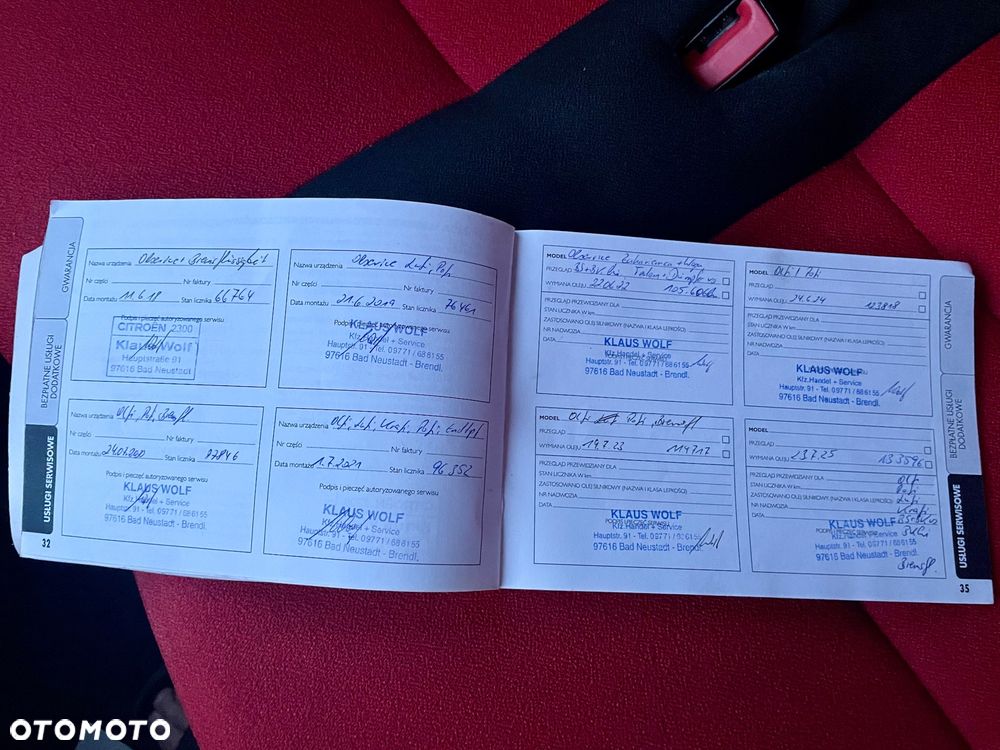 GWARANCJA
BEZPŁATNE USŁUGI
DODATKOWE
USŁUGI SERWISOWE
32
Nazwa urządzenia
Nr części Nr faktury
Data montażu 11.6.18 Stan licznika 66764
Podpis i pieczęć autoryzowanego serwisu
CITROËN 2300
Klaus Wolf
Hauptstraße 91
97616 Bad Neustadt - Brendl.
Nazwa urządzenia
Nr części Nr faktury
Data montażu 21.6.2019 Stan licznika 76461
Podpis i pieczęć autoryzowanego serwisu
KLAUS WOLF
Kfz.Handel + Service
Hauptstr. 91 - Tel. 09771 / 68 61 55
97616 Bad Neustadt - Brendl.
Nazwa urządzenia
Nr części Nr faktury
Data montażu Stan licznika 87846
Podpis i pieczęć autoryzowanego serwisu
KLAUS WOLF
Kfz.Handel + Service
Hauptstr. 91 - Tel. 09771 / 68 61 55
97616 Bad Neustadt - Brendl.
Nazwa urządzenia
Nr części Nr faktury
Data montażu 1.7.2021 Stan licznika 96352
Podpis i pieczęć autoryzowanego serwisu
KLAUS WOLF
Kfz.Handel + Service
Hauptstr. 91 - Tel. 09771 / 68 61 55
97616 Bad Neustadt - Brendl.
MODEL
PRZEGLĄD
WYMIANA OLEJU 22.06.22
PRZEGLĄD PRZEWIDZIANY DLA
STAN LICZNIKA W km
ZASTOSOWANO OLEJ SILNIKOWY (NAZWA I KLASA LEPKOŚCI)
NR NADWOZIA
DATA
KLAUS WOLF
Kfz.Handel + Service
Hauptstr. 91 - Tel. 09771 / 68 61 55
97616 Bad Neustadt - Brendl.
MODEL
PRZEGLĄD
WYMIANA OLEJU 24.6.24 123818
PRZEGLĄD PRZEWIDZIANY DLA
STAN LICZNIKA W km
ZASTOSOWANO OLEJ SILNIKOWY (NAZWA I KLASA LEPKOŚCI)
NR NADWOZIA
DATA
KLAUS WOLF
Kfz.Handel + Service
Hauptstr. 91 - Tel. 09771 / 68 61 55
97616 Bad Neustadt - Brendl.
MODEL
PRZEGLĄD
WYMIANA OLEJU 19.7.23 114717
PRZEGLĄD PRZEWIDZIANY DLA
STAN LICZNIKA W km
ZASTOSOWANO OLEJ SILNIKOWY (NAZWA I KLASA LEPKOŚCI)
NR NADWOZIA
DATA
KLAUS WOLF
Kfz.Handel + Service
Hauptstr. 91 - Tel. 09771 / 68 61 55
97616 Bad Neustadt - Brendl.
MODEL
PRZEGLĄD
WYMIANA OLEJU 23.7.25 133596
PRZEGLĄD PRZEWIDZIANY DLA
STAN LICZNIKA W km
ZASTOSOWANO OLEJ SILNIKOWY (NAZWA I KLASA LEPKOŚCI)
NR NADWOZIA
DATA
KLAUS WOLF
Kfz.Handel + Service
Hauptstr. 91 - Tel. 09771 / 68 61 55
97616 Bad Neustadt - Brendl.
GWARANCJA
BEZPŁATNE USŁUGI
DODATKOWE
USŁUGI SERWISOWE
35
OTOMOTO